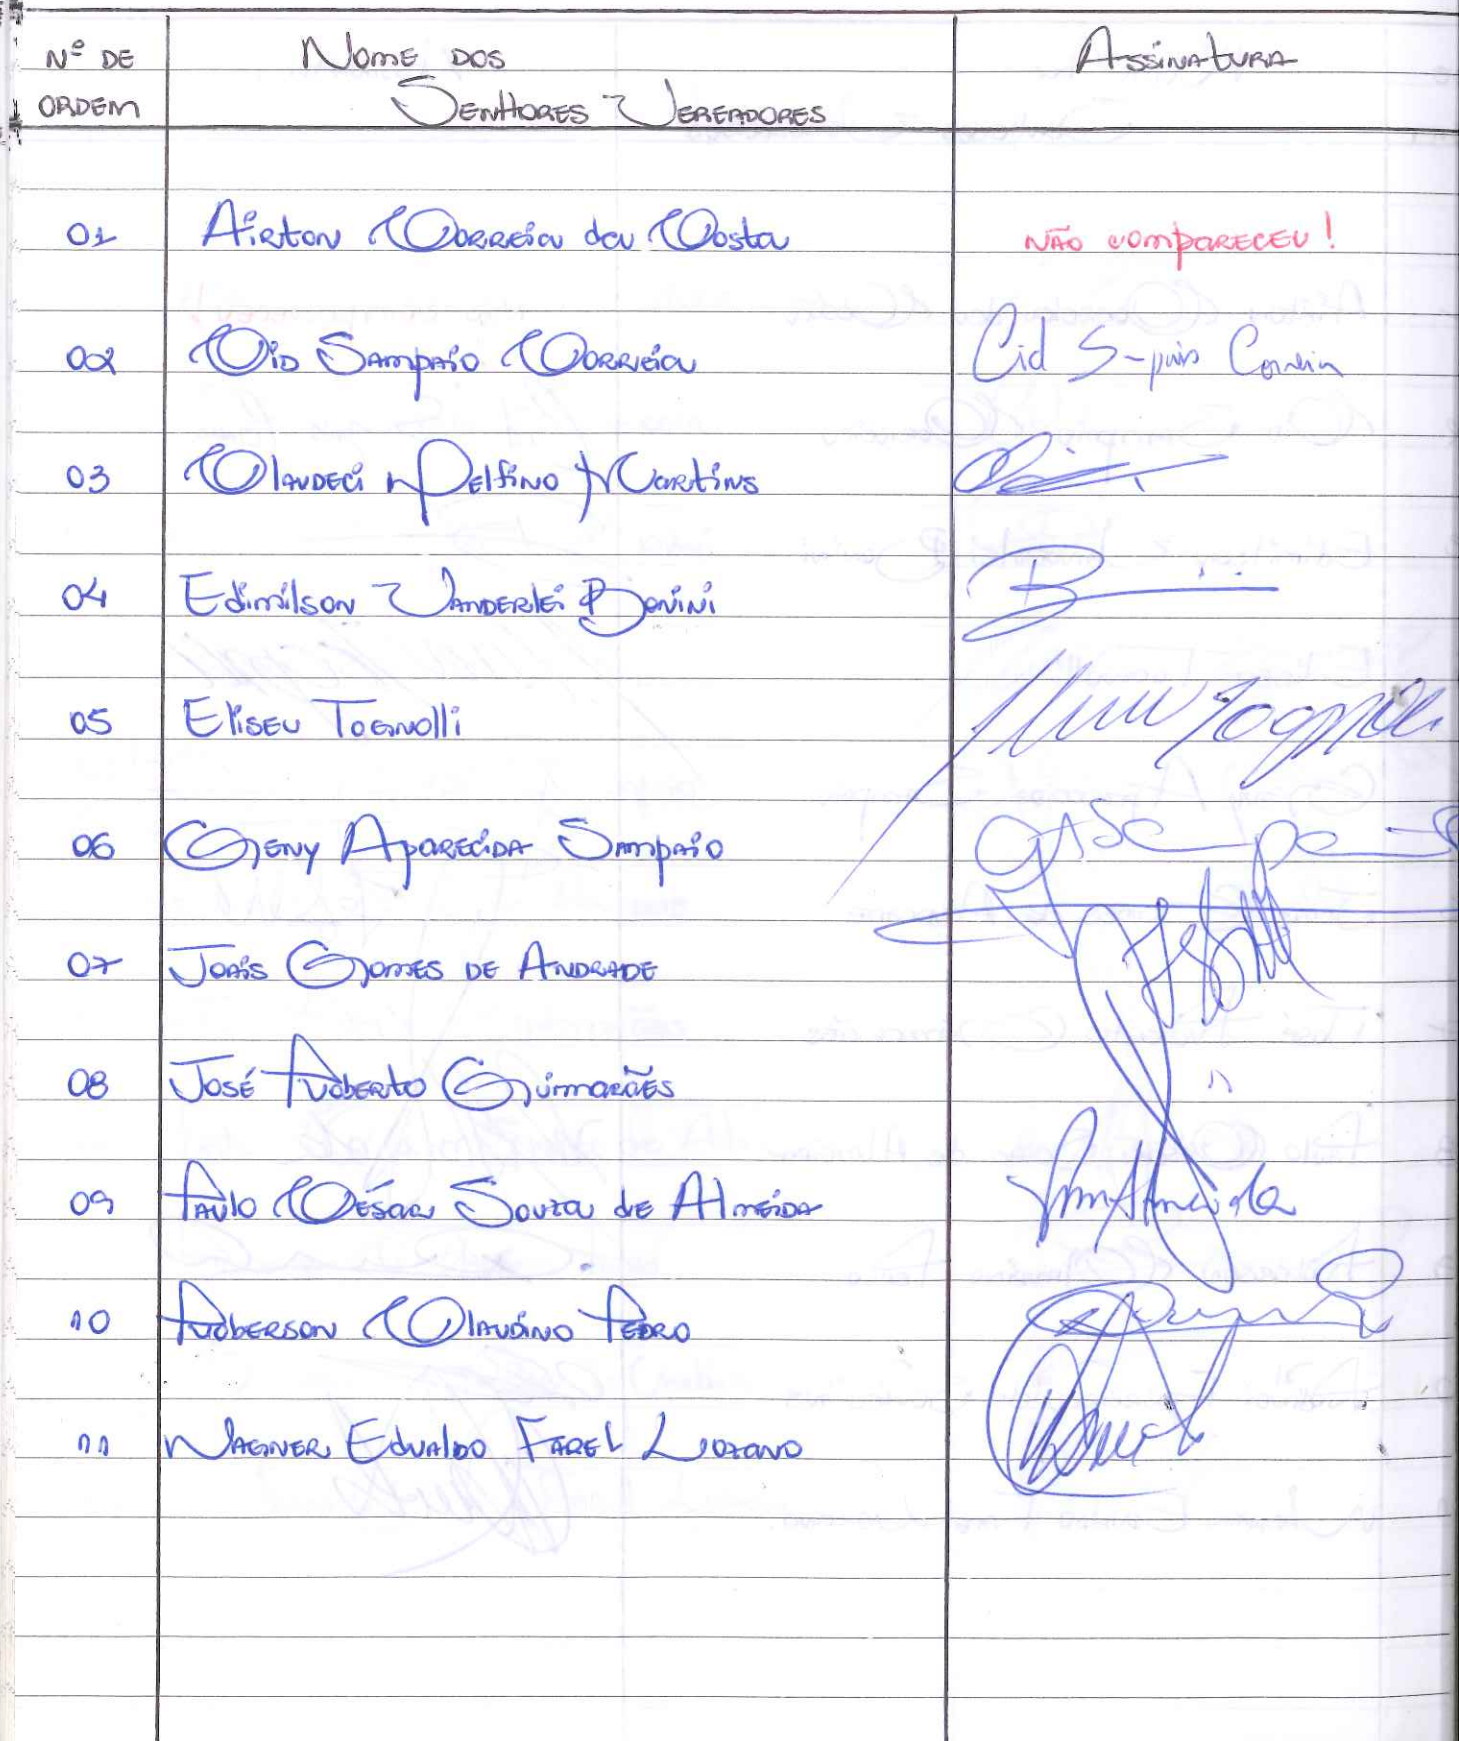 Nº DE NOME DOS ASSINATURA
ORDEM SENHORES VEREADORES
01 Airton Correia da Costa NÃO COMPARECEU!
02 Cid Sampaio Correia Cid Correia
03 Claudeci Delfino Martins
04 Edimilson Vanderlei Bonini
05 Eliseu Tognolli Tognolli
06 Geny Aparecida Sampaio
07 Joais Gomes de Andrade
08 José Roberto Guimarães
09 Paulo César Souza de Almeida Almeida
10 Roberson Claudino Pedro
11 Wagner Edvaldo Farel Lozano